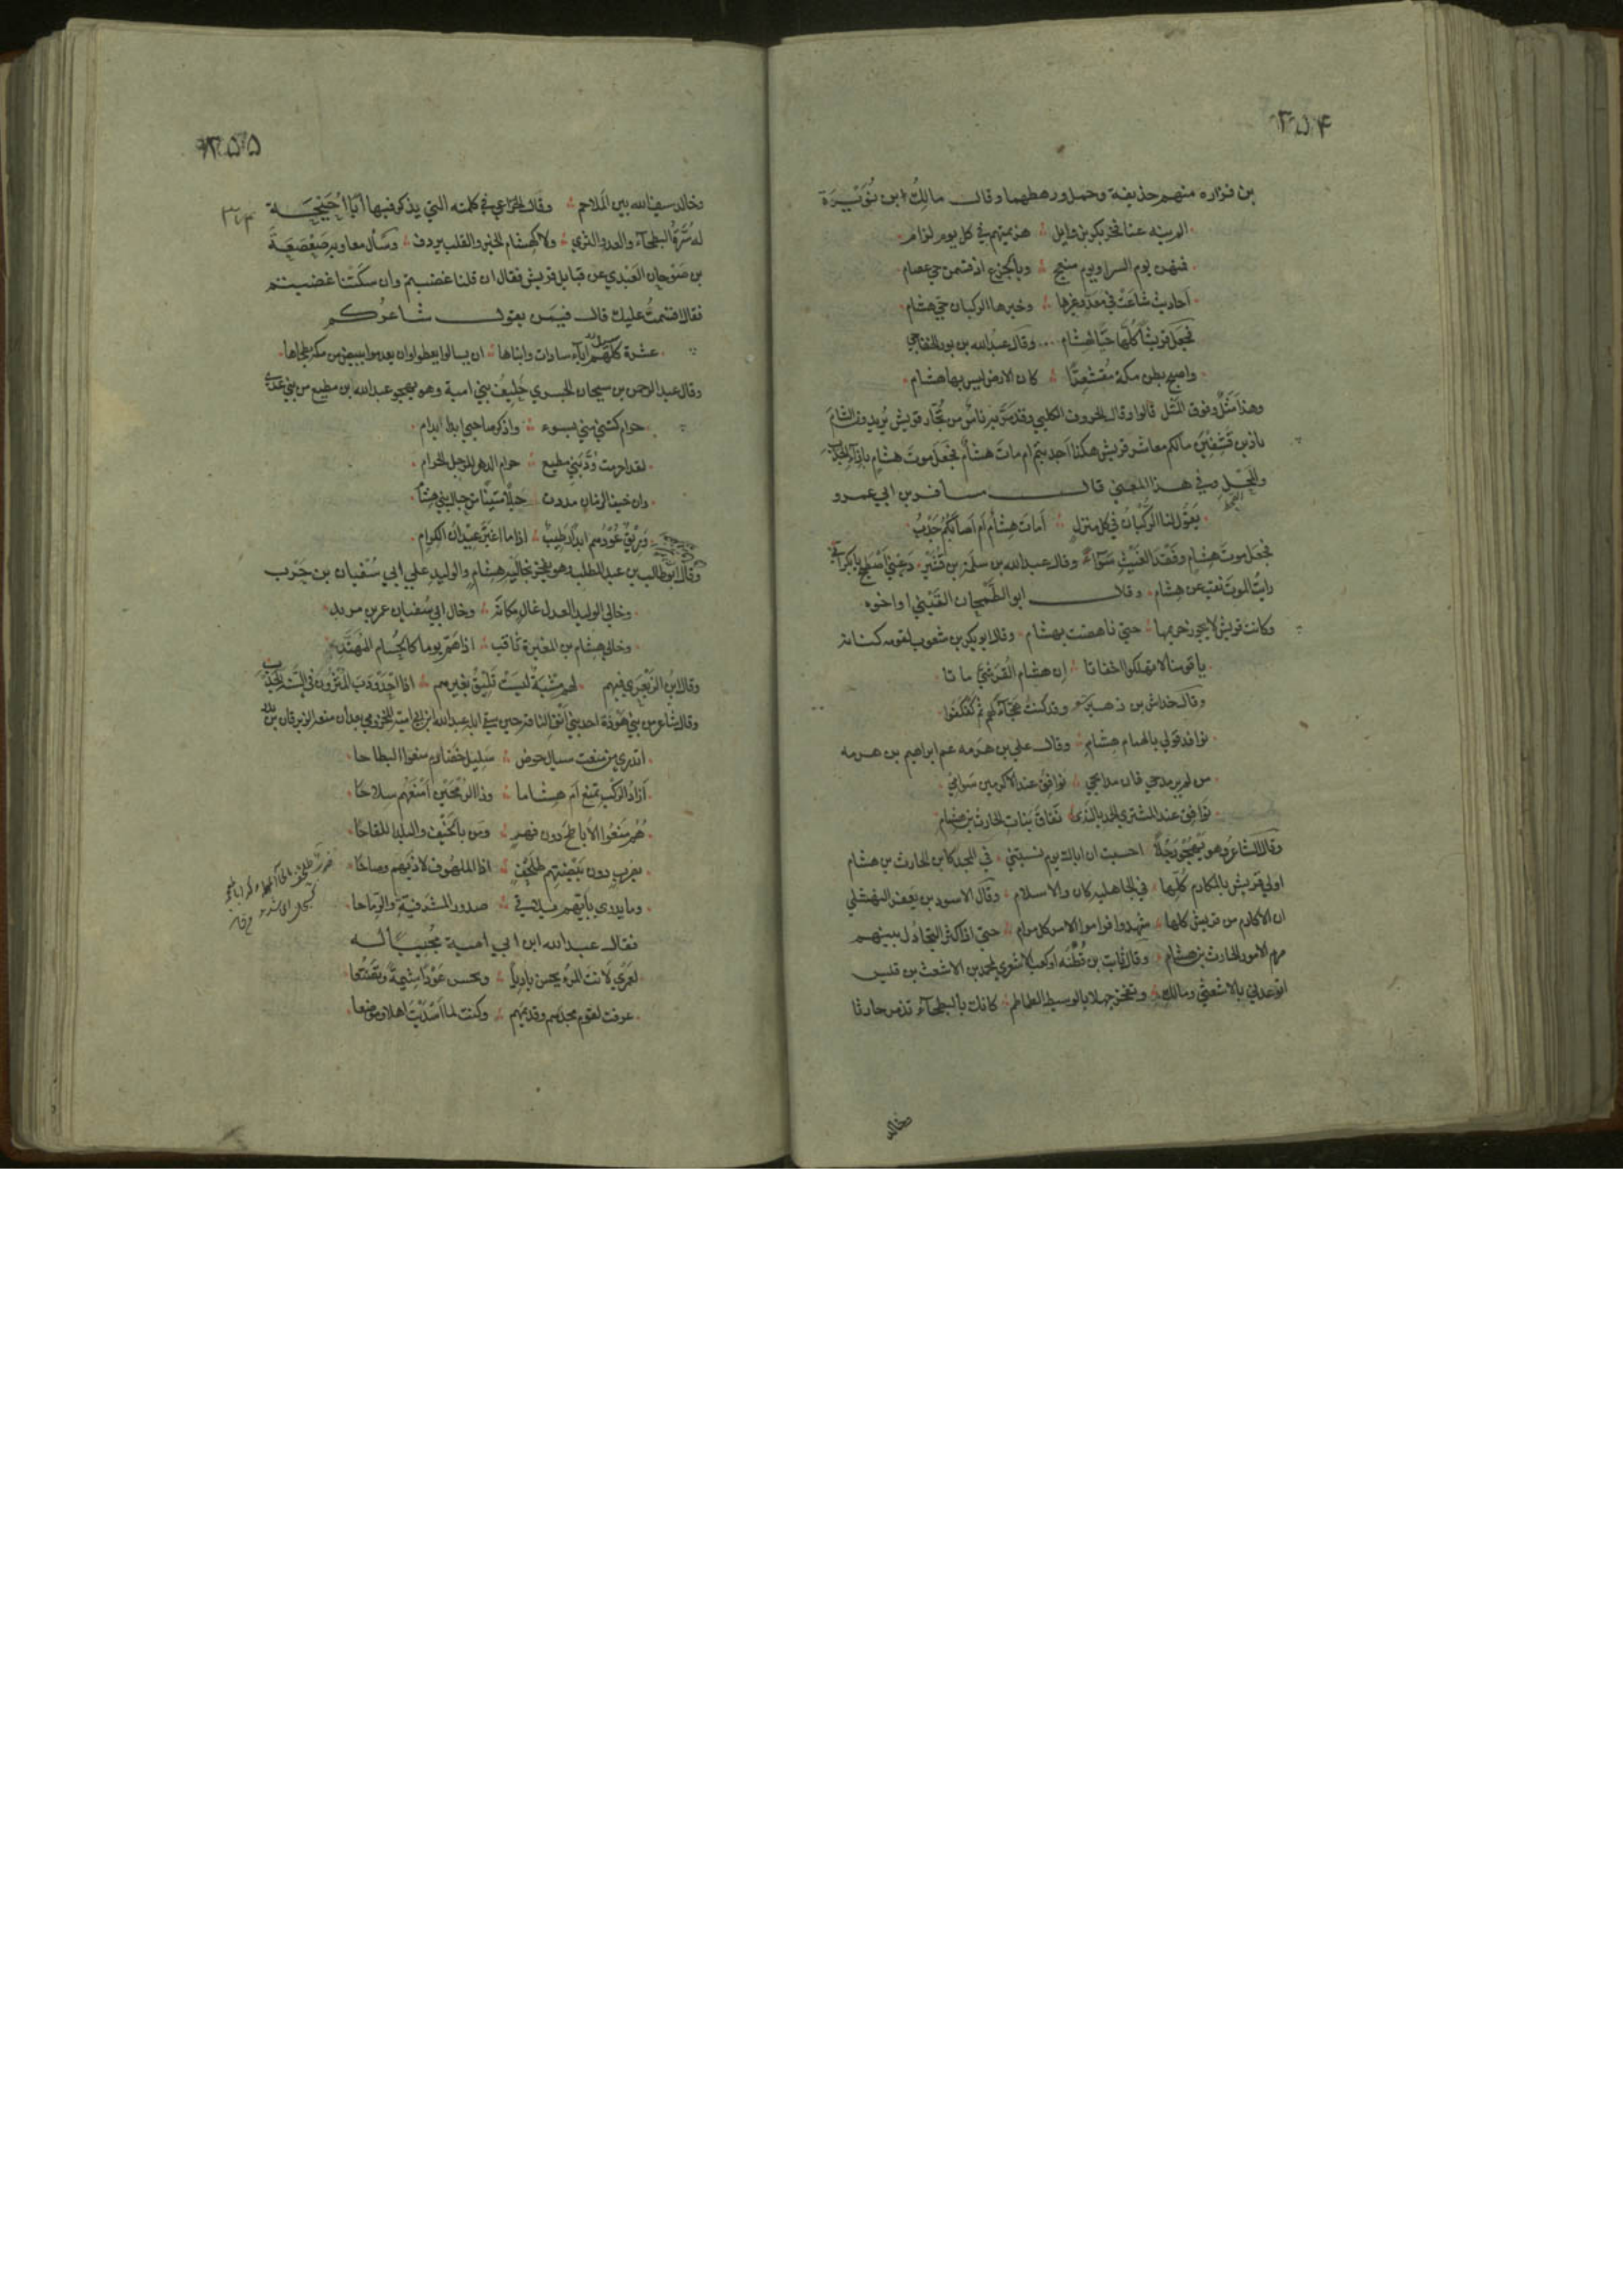 ٣٥۴
بن فزاره منهم حذيفة وحمل ورهطهما وقال مالك ابن نُوَيْرَة
فخر بكر بن وايل هزيمتهم في كل يوم لزام
فمنهن يوم السر او يوم منعج وبالجزع اذ قسمن حي عصام
احاديث شاعت في معدّ وغيرها وخبرها الركبان حي هشام
فجعل قريشا كلّها حيّا لهشام وقال عبد الله بن ثور الخفاجي
واصبح بطن مكة مُقشعِرًّا كان الارض ليس بها هشام
وهذا مَثَلٌ وفوق المثل قالوا وقال الخروف الكلبي وقد مَرَّ به ناسٌ من تُجّار قريش يُريدون الشامَ
مالكم معاشر قريش هكذا اجدبتم ام مات هشام فجعل موت هشام بازاء الجدب
والمحل وفي هذا المعني قال مسافر بن ابي عمرو
يقول لنا الركبان في كل منزل أمات هشام ام اصابكم جدب
فجعل موت هشام وفقد الغيث سواء وقال عبد الله بن سلمة بن قشير دعيني اصطبح يا بكر اني
رايت الموت نقب عن هشام وقال ابو الطمحان القيني او اخوه
وكانت قريش لا يجوز حريمها حتي ناهضت بهشام وقال ابو بكر بن شعوب لقومه كنانة
يا قومنا لا تهلكوا اخفاتا ان هشام القرشي ماتا
وقال خداش بن زهير وقد كنت هجّاء لهم ثم كفكفوا
نوافذ قولي بالهمام هشام وقال علي بن هرمه عم ابراهيم بن هرمه
من مدحي فان مدايحي نوافق عند الاكرمين سوامي
نوافق عند المشتري الحمد بالندي نفاق بنات الحارث بن هشام
وقال الشاعر وهو يهجو رجلًا احسبت ان اباك يوم نسبتني في المجد كان الحارث بن هشام
اولي قريش بالمكارم كلّها في الجاهلية كان والاسلام وقال الاسود بن يعفر النهشلي
ان الاكارم من قريش كلها شهدوا فراموا الامر كل مرام حتي اذا كثر التجادل بينهم
الامور الحارث بن هشام وقال ثابت بن قُطنه او كعب الاشعري لمحمد بن الاشعث بن قيس
اتوعدني بالاشعثي ومالك وتفخر جهلا بالوسيط الطماطم كانك بالبطحاء تذمر حارثا
وخالد
٣٥٥
وخالد سيف الله بين الملاحم وقال الخزاعي في كلمته التي يذكر فيها ابا اُحَيْحَة
له سُرّة البطحاء والعدد الثري ولا كهشام الخير والقلب يردف وسأل معاويه صَعْصَعَة
بن صَوْحان العَبْدي عن قبايل قريش فقال ان قلنا غضبتم وان سكتنا غضبتم
فقال اقسمت عليك قال فيمن يقول شاعركم
عشرة كلّهم اباء سادات وابناها ان يسالوا يعطوا وان يعدموا من مكة بطحاها
وقال عبد الرحمن بن سيحان الجسري حليف بني امية وهو يهجو عبد الله بن مطيع من بني عدي
حرام كنتي مني بسوء واذكر صاحبي ابدا بذام
لقد احرمت وُدّ بني مطيع حرام الدهن للرجل الحرام
وان خيف الزمان مددت حبلًا متينًا من حبال بني هشام
وريق عودهم ابدًا رطيب اذا ما اغبر عيدان الكرام
وقال ابو طالب بن عبد المطلب وهو يفخر بخاليه هشام والوليد علي ابي سُفيان بن حَرب
وخالي الوليد العدل عال مكانه وخال ابي سفيان عمرو بن مرثد
وخالي هشام بن المغيرة ثاقب اذا همّ يوما كالحسام المُهنّد
وقال ابن الزبعري فيهم لهم مشية ليست تليق بغيرهم اذا احدودب المثرون في السنة الجدب
وقال شاعر من بني هوذة احد بني انف الناقة حين سقي ابله عبد الله ابن ابي امية المخزومي بعد ان منعه الزبرقان بن بدر
اتدري من منعت سيال حوض سليل خضارم منعوا البطاحا
ازاد الركب تمنع ام هشاما وذا الرمحين امنعهم سلاحا
هُم منعوا الاباطح دون فهر ومن بالخيف والبلد اللقاحا
بضرب دون بيضتهم طلخف اذا الملهوف لاذ بهم وصاحا
وما يدري بأيهم يلاقي صدور المشرفية والرماحا
فقال عبد الله ابن ابي امية مُجيبًا له
لعمري لانت المرء يحسن باديًا وتحسن عَوْدًا شيمة وتقنعا
عرفت لقوم مجدهم وقديمهم وكنت لما اسديت اهلا وموضعا